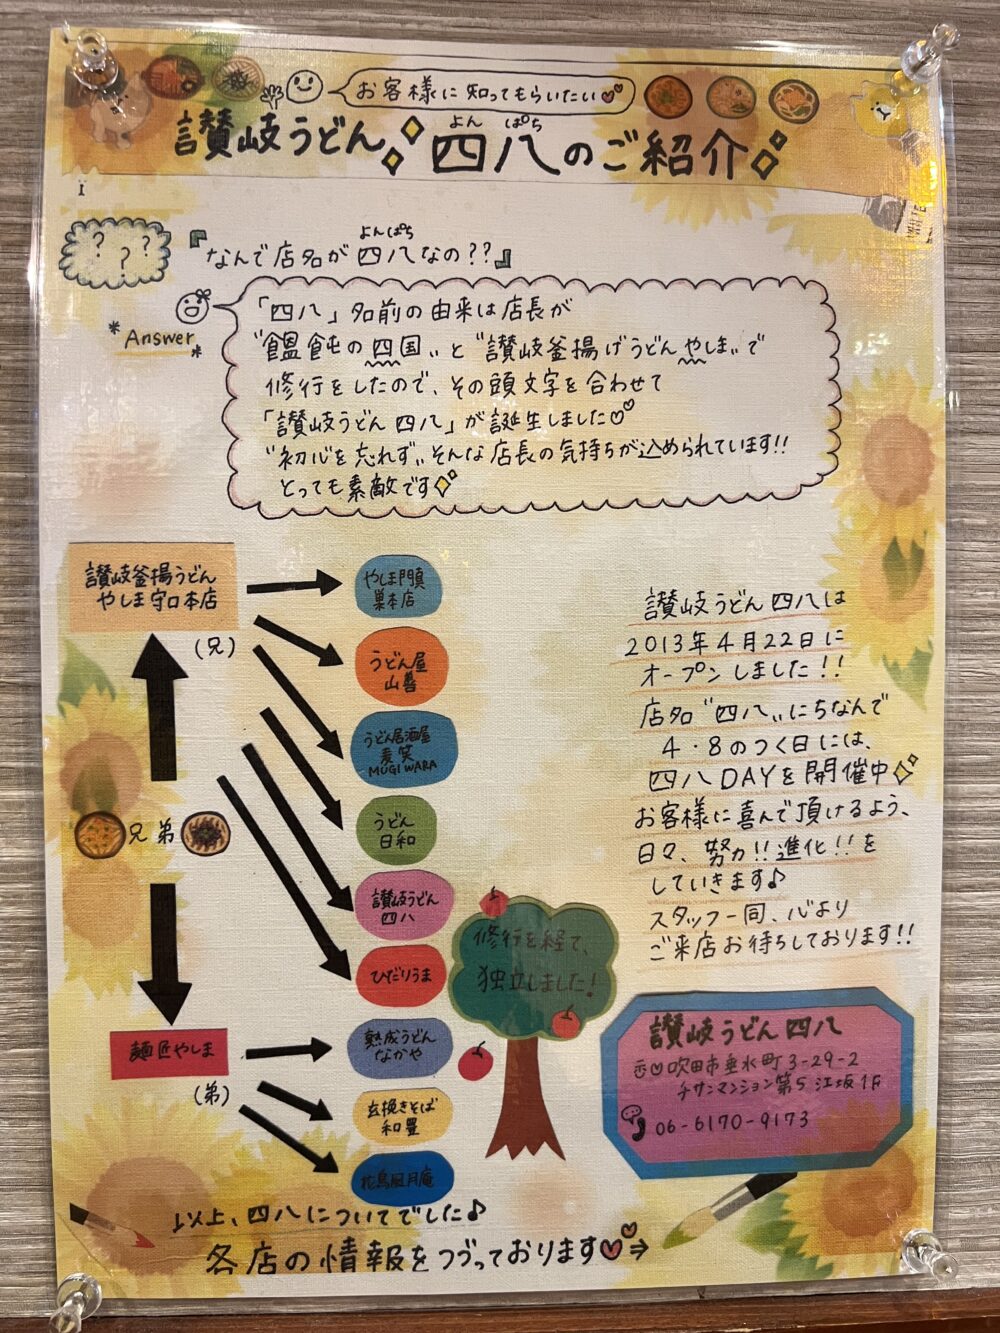 お客様に知ってもらいたい
よん ぱち
讃岐うどん 四八のご紹介
? ? ?
よんぱち
『なんで店名が四八なの??』
*Answer*
「四八」名前の由来は店長が
"饂飩の四国"と"讃岐釜揚げうどんやしま"で
修行をしたので、その頭文字を合わせて
「讃岐うどん四八」が誕生しました
"初心を忘れず"そんな店長の気持ちが込められています!!
とっても素敵です
讃岐釜揚うどん
やしま守口本店
(兄)
兄弟
麺匠やしま
(弟)
やしま門真
巣本店
うどん屋
山善
うどん居酒屋
麦笑
MUGIWARA
うどん
日和
讃岐うどん
四八
ひだりうま
熟成うどん
なかや
玄挽きそば
和豊
花鳥風月庵
修行を経て、
独立しました!
讃岐うどん四八は
2013年4月22日に
オープンしました!!
店名"四八"にちなんで
4・8のつく日には、
四八DAYを開催中
お客様に喜んで頂けるよう、
日々、努力!!進化!!を
していきます♪
スタッフ一同、心より
ご来店お待ちしております!!
讃岐うどん四八
吹田市垂水町3-29-2
チサンマンション第5江坂1F
06-6170-9173
以上、四八についてでした♪
各店の情報をつづっております⇒